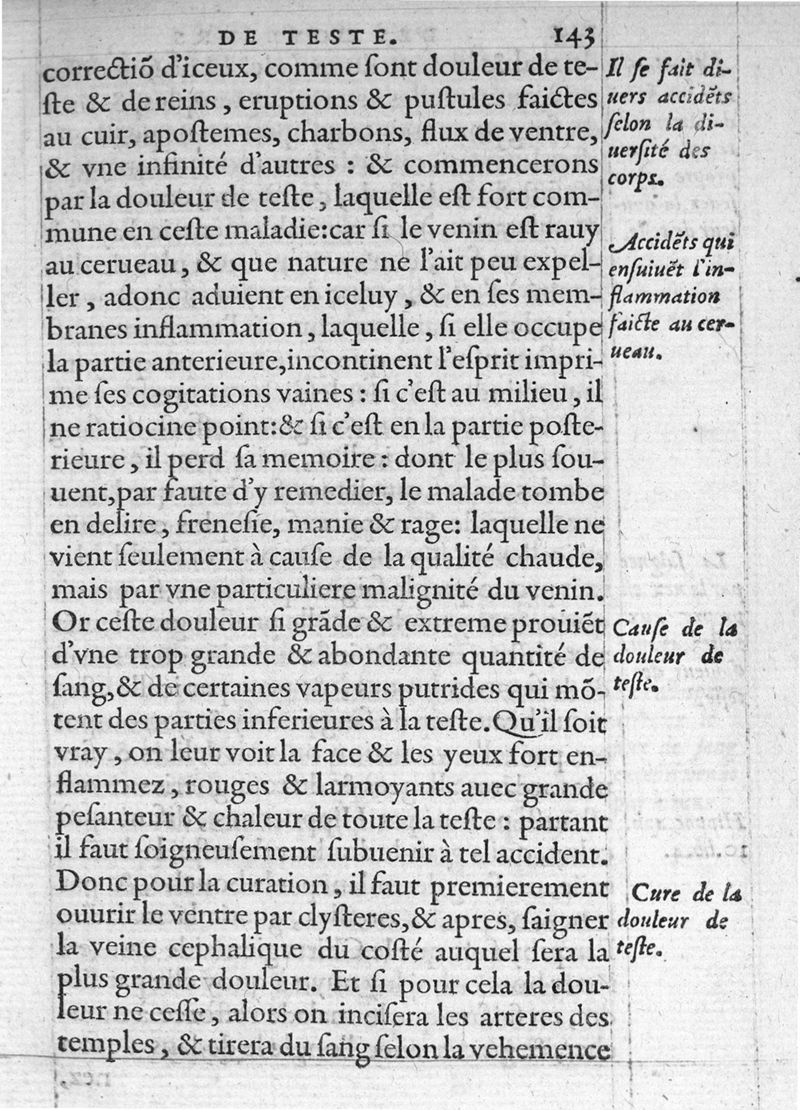 DE TESTE. 143
correctiõ d'iceux, comme ſont douleur de te-
ſte & de reins, eruptions & puſtules faictes
au cuir, apoſtemes, charbons, flux de ventre,
& vne infinité d'autres : & commencerons
par la douleur de teſte, laquelle eſt fort com-
mune en ceſte maladie:car ſi le venin eſt rauy
au cerueau, & que nature ne l'ait peu expel-
ler, adonc aduient en iceluy, & en ſes mem-
branes inflammation, laquelle, ſi elle occupe
la partie anterieure,incontinent l'eſprit impri-
me ſes cogitations vaines : ſi c'eſt au milieu, il
ne ratiocine point:& ſi c'eſt en la partie poſte-
rieure, il perd ſa memoire : dont le plus ſou-
uent,par faute d'y remedier, le malade tombe
en delire, freneſie, manie & rage: laquelle ne
vient ſeulement à cauſe de la qualité chaude,
mais par vne particuliere malignité du venin.
Or ceſte douleur ſi grãde & extreme prouiẽt
d'vne trop grande & abondante quantité de
ſang,& de certaines vapeurs putrides qui mõ-
tent des parties inferieures à la teſte.Qu'il ſoit
vray, on leur voit la face & les yeux fort en-
flammez, rouges & larmoyants auec grande
peſanteur & chaleur de toute la teſte : partant
il faut ſoigneuſement ſubuenir à tel accident.
Donc pour la curation, il faut premierement
ouurir le ventre par clyſteres,& apres, ſaigner
la veine cephalique du coſté auquel ſera la
plus grande douleur. Et ſi pour cela la dou-
leur ne ceſſe, alors on inciſera les arteres des
temples, & tirera du ſang ſelon la vehemence
Il ſe fait di-
uers accidẽts
ſelon la di-
uerſité des
corps.
Accidẽts qui
enſuiuẽt l'in-
flammation
faicte au cer-
ueau.
Cauſe de la
douleur de
teſte.
Cure de la
douleur de
teſte.